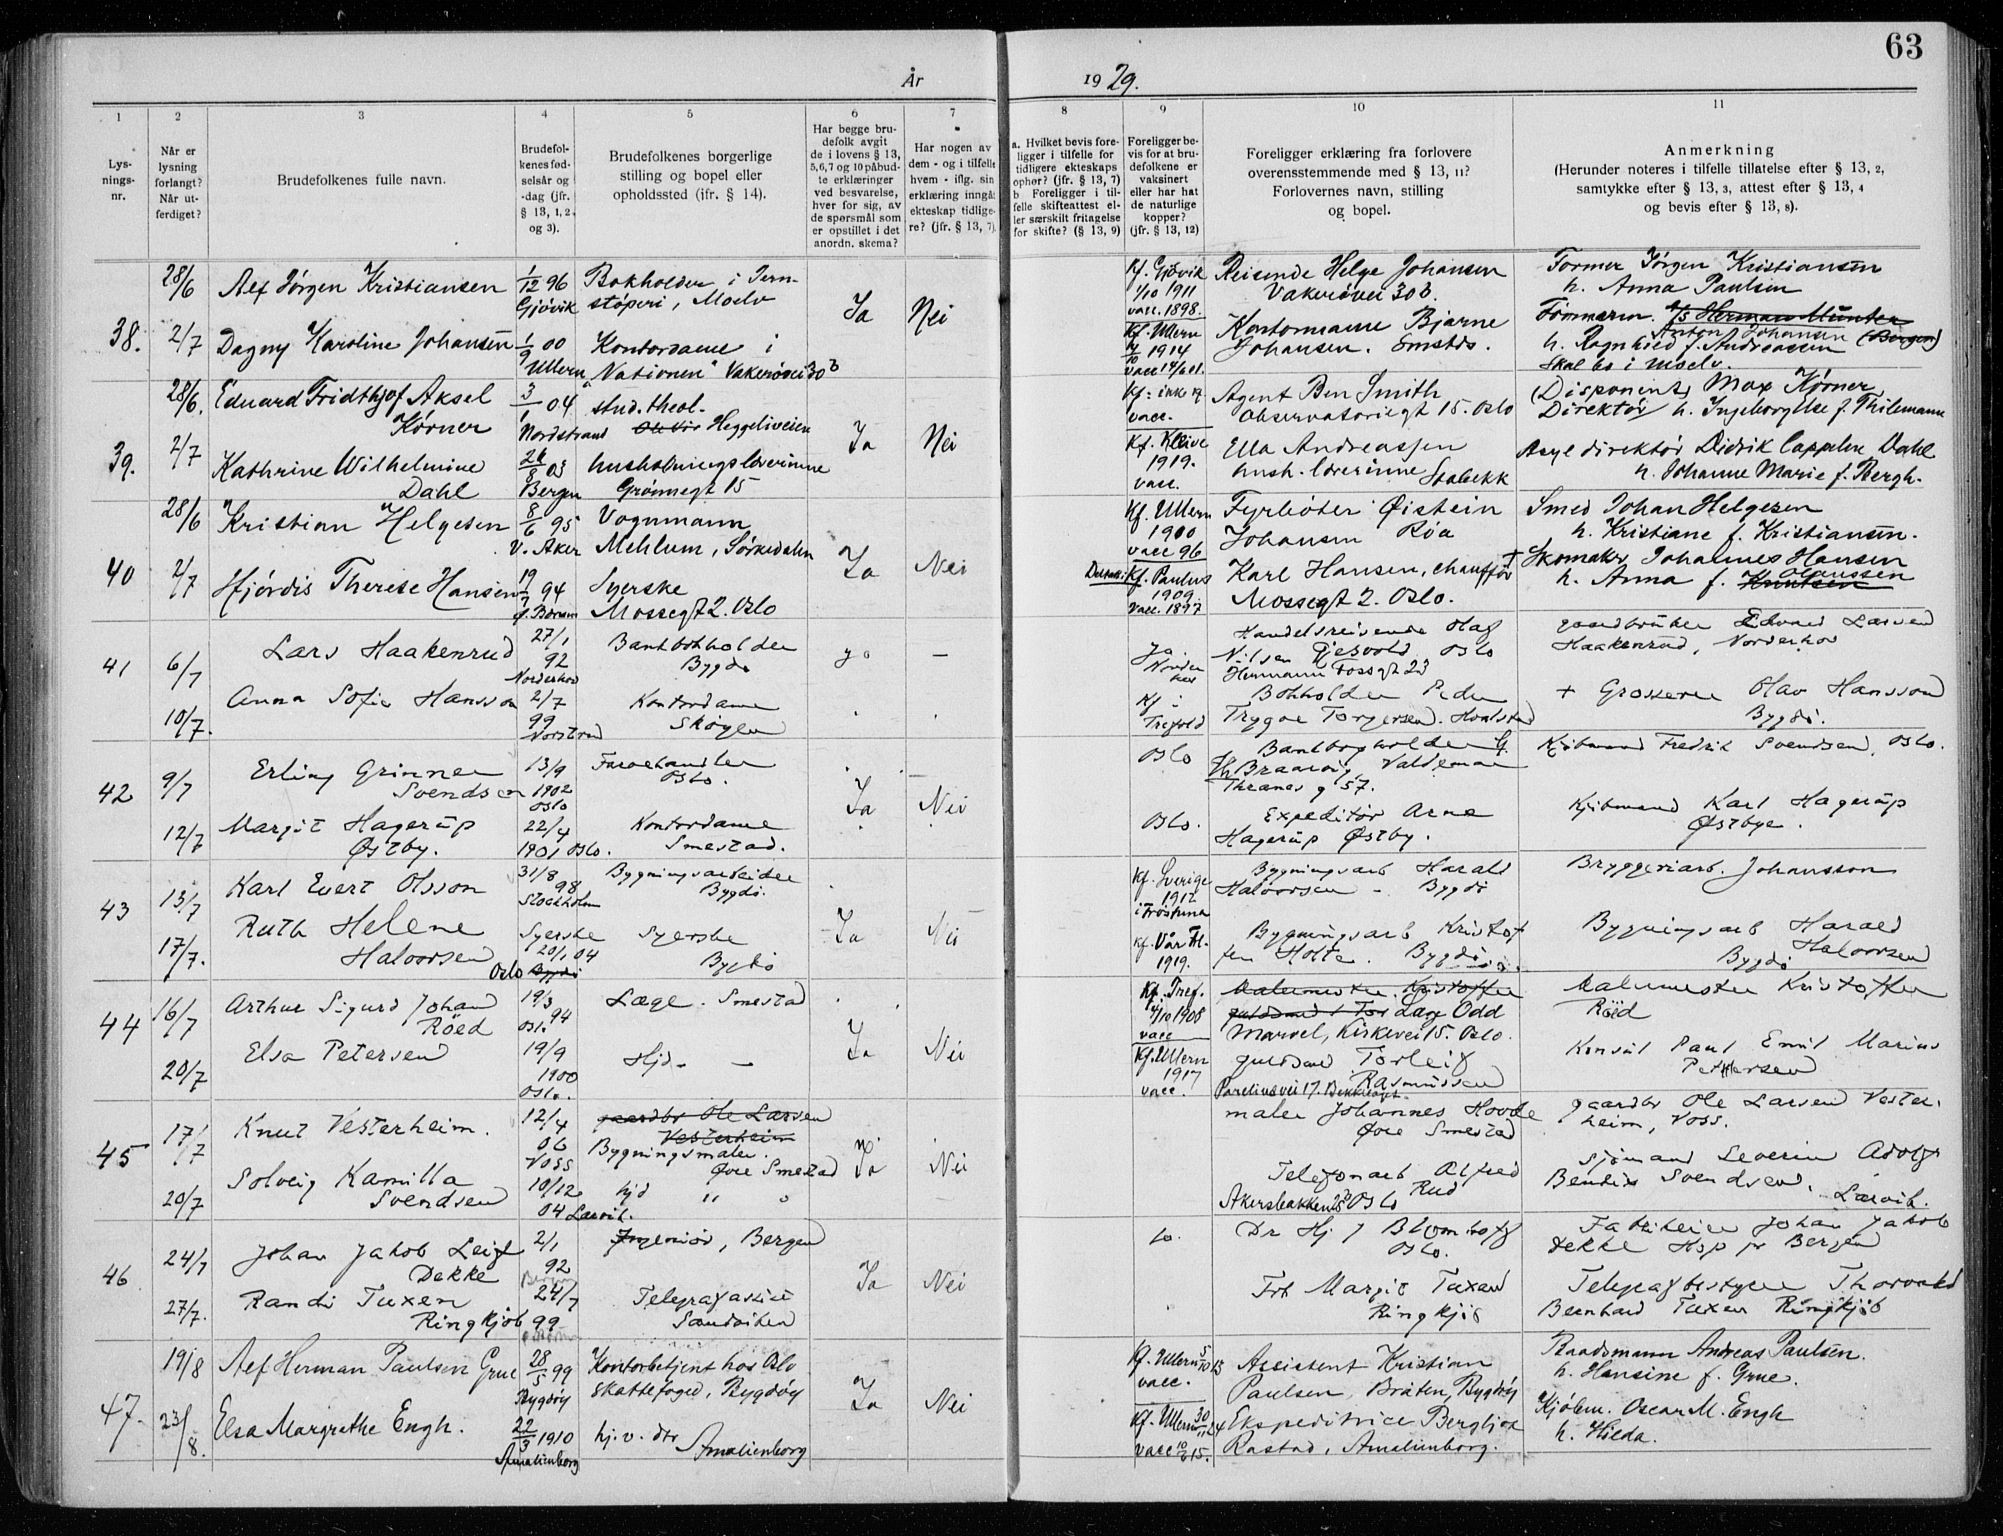 63
År 1929.
1 2 3 4 5 6 7 8 9 10 11
Lysningsnr.
Når er lysning forlangt? Når utferdiget?
Brudefolkenes fulle navn.
Brudefolkenes fødselsår og -dag (jfr. § 13, 1, 2, og 3).
Brudefolkenes borgerlige stilling og bopel eller opholdssted (jfr. § 14).
Har begge brudefolk avgit de i lovens § 13, 5,6,7 og 10 påbudte erklæringer ved besvarelse, hver for sig, av de spørsmål som er opstillet i det anordn. skema?
Har nogen av dem - og i tilfelle hvem - iflg. sin erklæring inngåt ekteskap tidligere? (jfr. § 13, 7).
a. Hvilket bevis foreligger i tilfelle for tidligere ekteskaps ophør? (jfr. § 13, 7) b Foreligger i tilfelle skifteattest eller særskilt fritagelse for skifte? (§ 13, 9)
Foreligger bevis for at brudefolkene er vaksinert eller har hat de naturlige kopper? (jfr. § 13, 12)
Foreligger erklæring fra forlovere overensstemmende med § 13, 11? Forlovernes navn, stilling og bopel.
Anmerkning (Herunder noteres i tilfelle tillatelse efter § 13, 2, samtykke efter § 13, 3, attest efter § 13, 4 og bevis efter § 13, 8).
38. 28/6 2/7
Alf Jørgen Kristiansen 1/12 96 Gjøvik
Bokholder i Jernstøperi, Moelv
Ja Nei
Kf. Gjøvik 1/10 1911 vacc. 1898.
Reisende Helge Johansen Vakerøvei 30 b.
Former Jørgen Kristiansen h. Anna Paulsen
Dagny Karoline Johansen 1/9 00 Ullern
Kontordame i "Nationen" Vakerøvei 30 b
Kf. Ullern 1914
Kontormann Bjarne Johansen. Smestad.
Tømmerm. Anton Johansen (Bergen)
h. Ragnhild f. Andreassen
Skal bo i Moelv.
39. 28/6. 2/7
Eduard Fridthjof Aksel Kørner 3/1 04 Nordstrand
stud. theol. Heggeliveien
Ja Nei
Kf: vacc.
Agent Ben Smith Observatoriegt 15. Oslo
(Disponent) Max Kørner Direktør h. Ingeborg Else f. Thilemann
Kathrine Wilhelmine Dahl 26/8 03 Bergen
husholdningslærerinne Grønnegt 15
Kf. Kleive 1919. vacc.
Ella Andreassen hush. lærerinne Stabekk
Asyldirektør Didrik Cappelen Dahl h. Johanne Marie f. Bergh.
40 28/6 2/7
"Kristian" Helgesen 8/6 95 V. Aker
Vognmann Mehlum, Sørkedalen
Ja Nei
Kf. Ullern 1900 vacc 96
Fyrbøter Øistein Johansen Røa
Smed Johan Helgesen h. Kristiane f. Kristiansen.
Hjørdis Therese Hansen 19/7 94 Ø. Bærum
Syerske Mossegt 2. Oslo
Kf. Paulus 1909. Vacc. 1897
Karl Hansen, chauffør Mossegt 2. Oslo.
+ Skomaker Johannes Hansen h. Anna f. Olaussen
41 6/7 10/7.
Lars Haakenrud 27/1 92 Norderhov
Bankbokholder Bygdø
ja —
Handelsreisende Olaf Nilsen Gjesvold Oslo Hermann Fossgt 23
gaardbruker Edvard Larsen Haakenrud, Norderhov
Anna Sofie Hansson 2/7 99 Norstrand
Kontordame Skøyen
Kf i Trefold
Bokholder Peder Trygve Torgersen.
+ Grosserer Olav Hansson Bygdø.
42 9/7 12/7
Erling Grinner Svendsen 13/9 1902 Oslo
Farvehandler Oslo.
Ja Nei
Oslo
Bankbogholder G. Th. Braarvig, Valdemar Thranes g 57.
Kjøbmand Fredrik Svendsen, Oslo.
Margit Hagerup Østby. 22/4 1901 Oslo.
Kontordame Smestad.
Oslo.
Expeditør Arne Hagerup Østby.
Kjøbmand Karl Hagerup Østbye.
43 13/7 17/7.
Karl Evert Olsson 31/8 98 Stockholm
Bygningsarbeider Bygdø.
Ja Nei
Kf. Sverige 1912
Bygningsarb Harald Halvorsen - Bygdø
Bryggeriarb. Johansson
Ruth Helene Halvorsen
Syerske 20/1 04 Oslo
Syerske Bygdø
Kf. Vår Fr. 1919.
Bygningsarb Kristoffen Holte. Bygdø.
Bygningsarb Harald Halvorsen Bygdø
44 16/7 20/7
Arthur Sigurd Johan Röed 19/3 94 Oslo
Læge. Smestad
Ja Nei
Kf. Tref. 1/10 1908 vacc
Læge Odd Marvel, Kirkevei 15. Oslo.
Malermester Kristoffer Röed
Elsa Petersen 19/9 1900 Oslo.
Hjd - —
Kf. Ullern 1917 vacc.
guldsmed Torleif Rasmussen Parelius vei 17. Bekkelaget.
Konsul Paul Emil Marius Pettersen
45 17/7 20/7
Knut Vesterheim. 12/4 06 Voss
gaardbr Ole Larsen Vesterheim
Bygningsmaler. Øvre Smestad
Ja Nei
maler Johannes Hovde Øvre Smestad
gaardbr Ole Larsen Vesterheim, Voss.
Solveig Kamilla Svendsen 10/12 04 Larvik.
hjd " "
Telefonarb Alfred Rud Akersbakken 28 Oslo
Sjømand Severin Adolf Bendix Svendsen. Larvik.
46 24/7 27/7.
Johan Jakob Leif Dekke 2/1 92 Bergen
Ingeniør, Bergen
Ja Nei
Dr Hj J Blomhoff Oslo.
Fabrikeier Johan Jakob Dekke Hop pr Bergen
Randi Tuxen Ringkjøb 24/7 99
Telegrafassist Sandviken
Frk Margit Tuxen Ringkjøb
Telegrafbestyrer Thorvald Bernhard Tuxen Ringkjøb
47. 19/8 23/8.
Alf Herman Paulsen Grue 28/5 99 Bygdøy
Kontorbetjent hos Oslo skattefoged, Bygdøy
Ja Nei
Kf. Ullern 5/10 13 vacc.
Assistent Kristian Paulsen, Bråten, Bygdøy
Raadsmann Andreas Paulsen. h. Hansine f. Grue.
Elsa Margrethe Engh. 22/3 1910 Amalienborg
hj. v. dtr Amalienborg
Kf. Ullern 30/11 24 vacc 10/6 15.
Ekspeditrice Bergljot Rastad, Amalienborg.
Kjøbm. Oscar M. Engh h. Hilda.